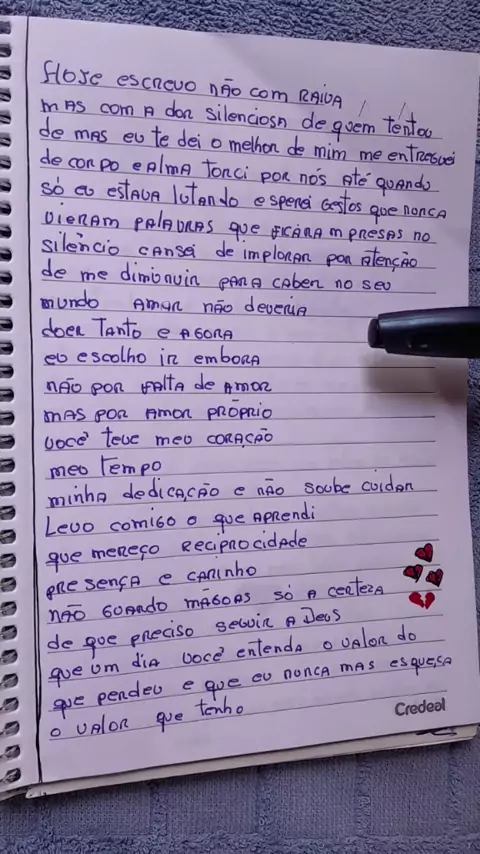 Hoje escrevo não com RAiva
mas com A dor silenciosa de quem tentou
de mas eu te dei o melhor de mim me entreguei
de corpo e Alma Torci por nós Até quando
só eu estava lutando e esperei Gestos que nunca
vieram palavras que ficaram presas no
silêncio cansei de implorar por Atenção
de me diminuir para caber no seu
mundo Amar não deveria
doer Tanto e Agora
eu escolho ir embora
não por falta de Amor
mas por Amor próprio
você teve meu coração
meu tempo
minha dedicação e não soube cuidar
Levo comigo o que Aprendi
que mereço Reciprocidade
presença e carinho
não guardo mágoas só a certeza
de que preciso seguir A Deus
que um dia você entenda o valor do
que perdeu e que eu nunca mas esqueça
o valor que tenho
Credeal